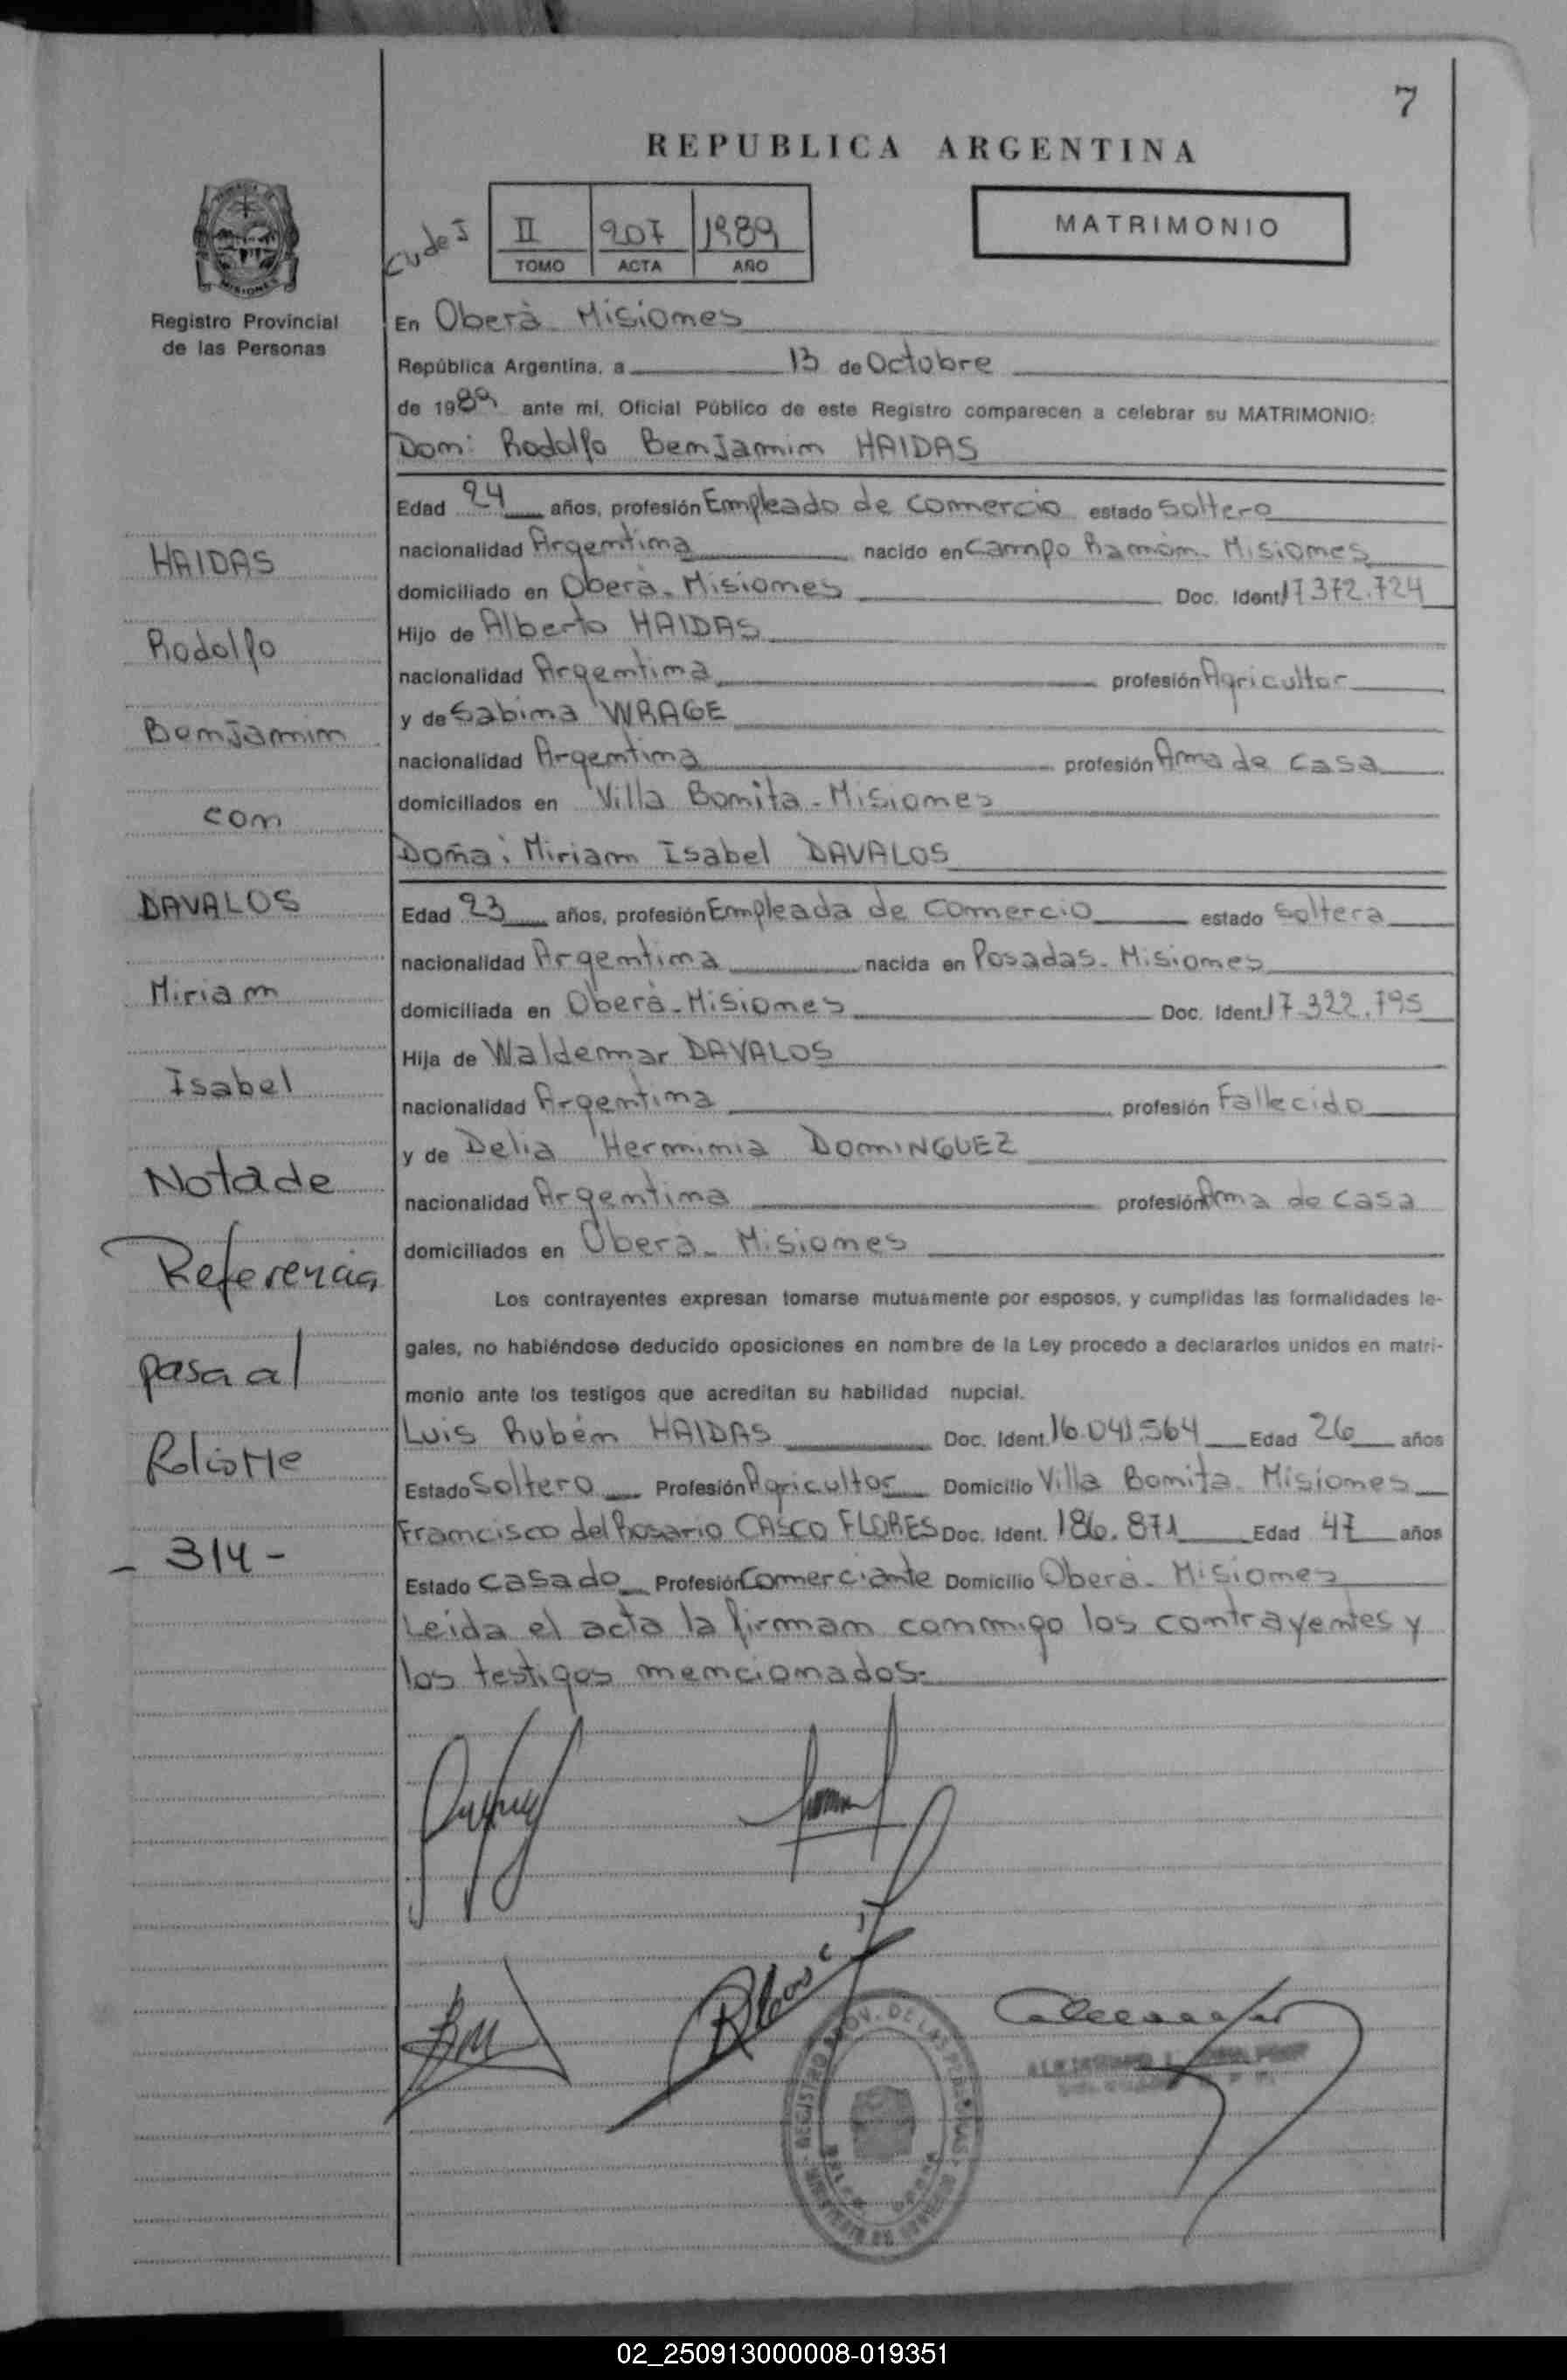 7
REPUBLICA ARGENTINA
MATRIMONIO
II 207 1989
TOMO ACTA AÑO
Registro Provincial
de las Personas
En Oberà Misiones
República Argentina, a 13 de Octubre
de 1989 ante mi, Oficial Público de este Registro comparecen a celebrar su MATRIMONIO:
Don: Rodolfo Benjamin HAIDAS
Edad 24 años, profesión Empleado de Comercio estado Soltero
nacionalidad Argentina nacido en Campo Ramòn. Misiones
domiciliado en Oberà. Misiones Doc. Ident. 17.372.724
Hijo de Alberto HAIDAS
nacionalidad Argentina profesión Agricultor
y de Sabina WRAGE
nacionalidad Argentina profesión Ama de Casa
domiciliados en Villa Bonita - Misiones
Doña: Miriam Isabel DAVALOS
Edad 23 años, profesión Empleada de Comercio estado Soltera
nacionalidad Argentina nacida en Posadas. Misiones
domiciliada en Oberà. Misiones Doc. Ident. 17.322.795
Hija de Waldemar DAVALOS
nacionalidad Argentina profesión Fallecido
y de Delia Herminia DOMINGUEZ
nacionalidad Argentina profesión Ama de Casa
domiciliados en Oberà. Misiones
Los contrayentes expresan tomarse mutuamente por esposos, y cumplidas las formalidades le-
gales, no habiéndose deducido oposiciones en nombre de la Ley procedo a declararlos unidos en matri-
monio ante los testigos que acreditan su habilidad nupcial.
Luis Rubèn HAIDAS Doc. Ident. 16.041.564 Edad 26 años
Estado Soltero Profesión Agricultor Domicilio Villa Bonita. Misiones
Francisco del Rosario CASCO FLORES Doc. Ident. 186.871 Edad 47 años
Estado Casado Profesión Comerciante Domicilio Oberà. Misiones
Leida el acta la firman conmigo los contrayentes y
los testigos mencionados.
HAIDAS
Rodolfo
Benjamin
con
DAVALOS
Miriam
Isabel
Nota de
Referencia
pasa al
Folio Nº
- 314 -
02_250913000008-019351